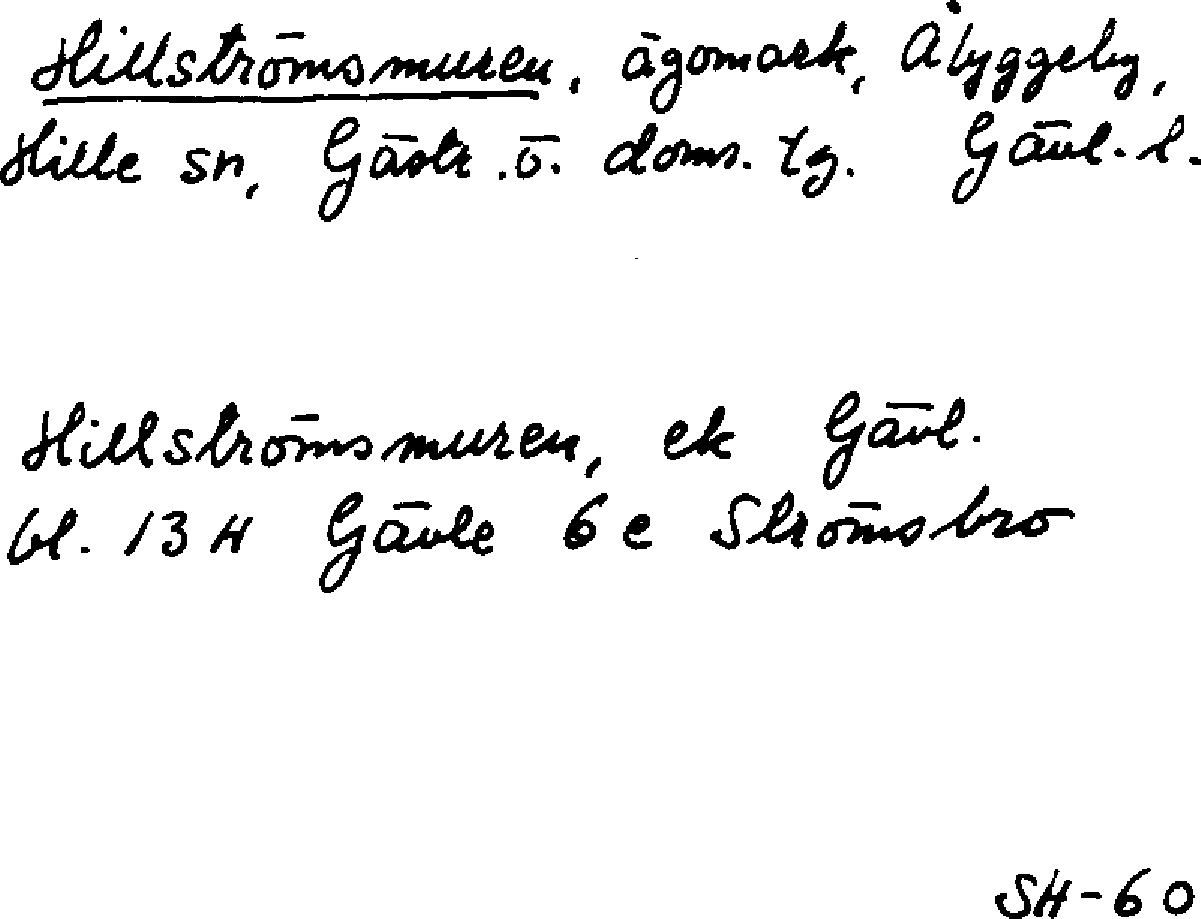 Hillströmsmuren, ägomark, Åbyggeby,
Hille sn, Gästr. ö. doms. tg. Gävl. l.
Hillströmsmuren, ek Gävl.
bl. 13 H Gävle 6 c Strömsbro
SH-60